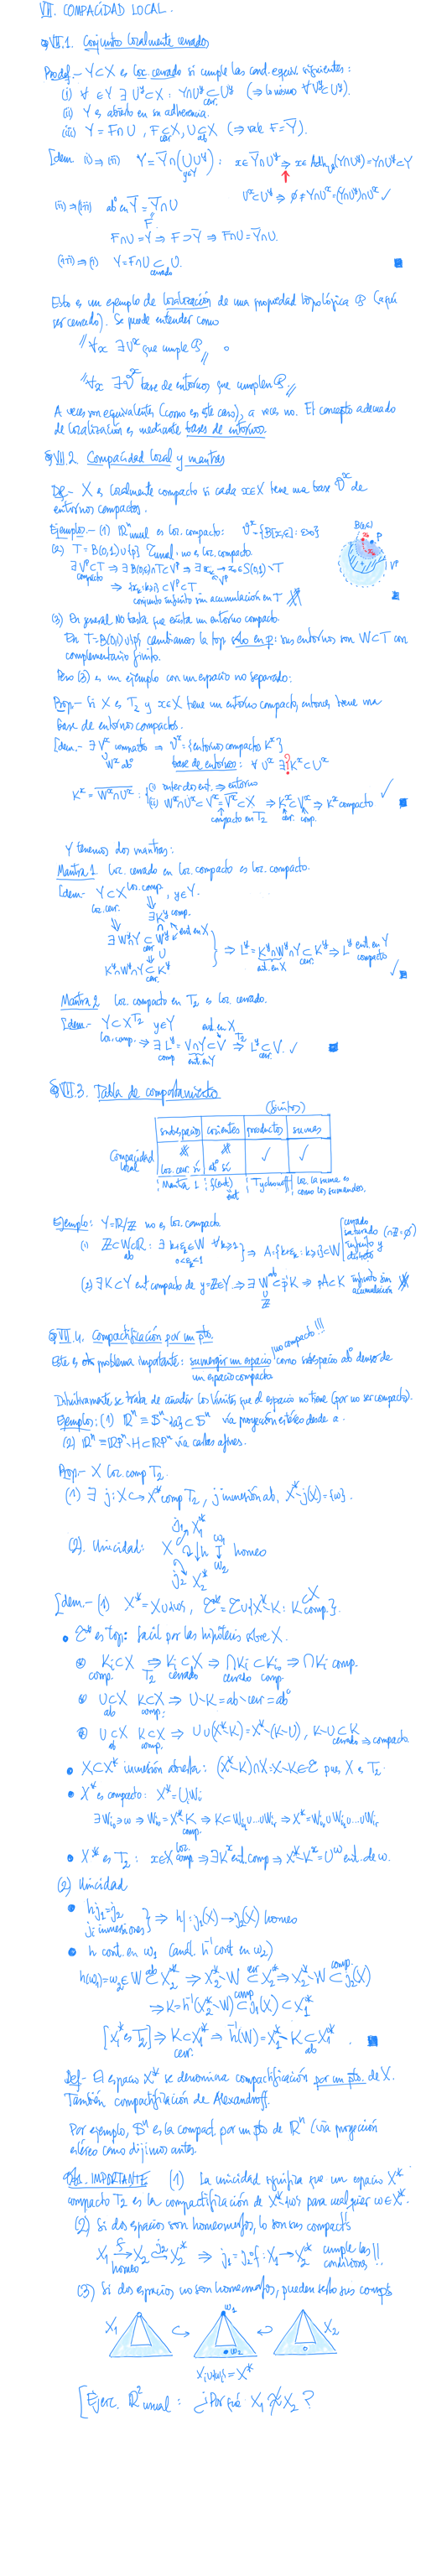 VII. COMPACIDAD LOCAL.
§VII.1. Conjuntos localmente cerrados
Prodef.- Y⊂X es loc. cerrado si cumple las cond. equiv. siguientes:
(i) ∀ y∈Y ∃ U^y⊂X : Y∩U^y ⊂ U^y (⇒ lo mismo ∀ V^y⊂U^y).
cerr.
(ii) Y es abierto en su adherencia.
(iii) Y = F∩U, F⊂X, U⊂X (⇒ vale F=Y̅).
cerr ab
[dem. (i)⇒(ii) Y = Y̅∩(⋃U^y) : x∈Y̅∩U^y ⇒ x∈Adh(Y∩U^y)=Y∩U^y⊂Y
y∈Y
(ii)⇒(iii) ab° en Y̅ = Y̅∩U
F
F∩U=Y ⇒ F⊃Y̅ ⇒ F∩U=Y̅∩U.
(iii)⇒(i) Y=F∩U ⊂ U.
cerrado
Esto es un ejemplo de localización de una propiedad topológica P (aquí
ser cerrado). Se puede entender como
"∀x ∃V^x que cumple P" o
"∀x ∃V^x base de entornos que cumplen P"
A veces son equivalentes (como en este caso), a veces no. El concepto adecuado
de localización es mediante bases de entornos.
§VII.2 Compacidad local y mantras
Def.- X es localmente compacto si cada x∈X tiene una base V^x de
entornos compactos.
Ejemplos.- (1) R^n usual es loc. compacto: V^x={B[x,ε]: ε>0}
(2) T = B(0,1)∪{p} T usual. no es loc. compacto.
∃V^p⊂T ⇒ ∃ B(p,ε)∩T⊂V^p ⇒ ∃ x_k → x_0∈S(0,1)∖T
compacto ∈V^p
⇒ {x_k: k≥1}⊂V^p⊂T
conjunto infinito sin acumulación en T
B(p,ε)
p
V^p
(3) En general no basta que exista un entorno compacto.
En T=B(0,1)∪{p} cambiamos la top. sólo en p: sus entornos son W⊂T con
complementario finito.
Pero (3) es un ejemplo con un espacio no separado:
Prop.- Si X es T2 y x∈X tiene un entorno compacto, entonces tiene una
base de entornos compactos.
[dem.- ∃ V^x compacto ⇒ V^x={entornos compactos K^x}
W^x ab° base de entornos: ∀ U^x ∃? K^x⊂U^x
K^x = W^x∩U^x : (i) inter de ent. ⇒ entorno
(ii) W^x∩U^x⊂V^x=V̅^x⊂X ⇒ K^x⊂V^x ⇒ K^x compacto
compacto en T2 cerr. comp.
Y tenemos dos mantras:
Mantra 1 loc. cerrado en loc. compacto es loc. compacto.
[dem- Y⊂X loc. comp., y∈Y.
loc. cerr. ∃K^y comp.
∃ W^y∩Y ⊂ W^y ent. en X
cerr
K^y∩W^y∩Y⊂K^y
cerr.
⇒ L^y = K^y∩W^y∩Y⊂K^y ⇒ L^y ent. en Y
ent. en X cerr. compacto
Mantra 2 loc. compacto en T2 es loc. cerrado.
[dem.- Y⊂X^T2 y∈Y ent. en X
loc. comp. ⇒ ∃ L^y = V∩Y⊂V ⇒ L^y⊂V. ✓
comp ent. en Y cerr.
§VII.3. Tabla de comportamiento
(finitos)
subespacios cocientes productos sumas
Compacidad local
loc. cerr. sí ab° sí ✓ ✓
Mantra 1 Tychonoff loc. la suma es
como los sumandos.
Ejemplo: Y=R/Z no es loc. compacto
(1) Z⊂W⊂R : ∃ k+ε_k∈W ∀k≥1 ⇒ A={k+ε_k: k≥1}⊂W
ab 0<ε_k<1
cerrado
saturado (∩Z=∅)
infinito y
discreto
(2) ∃K⊂Y ent compacto de y=Z∈Y ⇒ ∃ W ⊂ p⁻¹K ⇒ pA⊂K infinito sin
acumulación
§VII.4. Compactificación por un pto.
¡¡no compacto!!
Este es otro problema importante: sumergir un espacio como subespacio ab° denso de
un espacio compacto
Intuitivamente se trata de añadir los límites que el espacio no tiene (por no ser compacto).
Ejemplos: (1) R^n ≡ S^n∖{a} ⊂ S^n vía proyección estéreo desde a.
(2) R^n ≡ RP^n∖H⊂RP^n vía cartas afines.
Prop.- X loc. comp T2.
(1) ∃ j: X↪X* comp T2, j inmersión ab, X*∖j(X)={ω}.
(2). Unicidad: X j1 X1* ω1 h homeo j2 X2* ω2
[dem.- (1) X*=X∪{ω}, T*=T∪{X*∖K: K⊂X comp.}.
• T* es top: fácil por las hipótesis sobre X.
K_i⊂X ⇒ K_i⊂X ⇒ ⋂K_i⊂K_i0 ⇒ ⋂K_i comp.
comp. T2 cerrados cerrado comp.
U⊂X K⊂X ⇒ U∖K=ab∖cerr=ab°
ab comp.
U⊂X K⊂X ⇒ U∪(X*∖K)=X*∖(K∖U), K∖U⊂K
ab comp. cerrado⇒compacto
• X⊂X* inmersión abierta: (X*∖K)∩X=X∖K∈T pues X es T2.
• X* es compacto: X*=⋃W_i
∃W_i0∋ω ⇒ W_i0=X*∖K ⇒ K⊂W_i1∪...∪W_ir ⇒ X*=W_i0∪W_i1∪...∪W_ir
comp.
• X* es T2: x∈X loc. comp ⇒ ∃K^x ent. comp ⇒ X*∖K^x=U^ω ent. de ω.
(2) Unicidad
• hj1=j2
j_i inmersiones ⇒ h|: j1(X)→j2(X) homeo
• h cont. en ω1 (anál. h⁻¹ cont en ω2)
h(ω1)=ω2∈W⊂X2* ⇒ X2*∖W⊂X2* ⇒ X2*∖W⊂j2(X)
⇒ K=h⁻¹(X2*∖W)⊂j1(X)⊂X1*
[X1* es T2] ⇒ K⊂X1* ⇒ h⁻¹(W)=X1*∖K⊂X1*.
cerr. ab
Def- El espacio X* se denomina compactificación por un pto. de X.
También compactificación de Alexandroff.
Por ejemplo, S^n es la compact. por un pto de R^n (vía proyección
estéreo como dijimos antes.
Obs. IMPORTANTE (1) La unicidad significa que un espacio X*
compacto T2 es la compactificación de X*∖{ω} para cualquier ω∈X*.
(2) Si dos espacios son homeomorfos, lo son sus compacts
X1 f→ X2 j2→ X2* ⇒ j1=j2f: X1→X2* cumple las condiciones!!
homeo
(3) Si dos espacios no son homeomorfos, pueden serlo sus compts
X1 ↪ ω1 ω2 ↩ X2
X_i∪{ω_i}=X*
[Ejerc. R² usual: ¿Por qué X1≇X2?